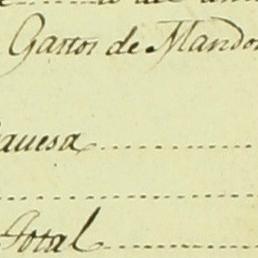 Gastos de Mando
auesa
Total